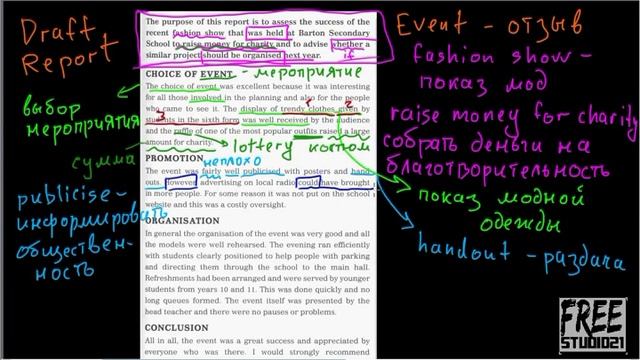 Draft
Report
Event - отзыв
The purpose of this report is to assess the success of the
recent fashion show that was held at Barton Secondary
School to raise money for charity and to advise whether a
similar project should be organised next year.
if
fashion show -
показ мод
raise money for charity
собрать деньги на
благотворительность
показ модной
одежды
handout - раздача
выбор
мероприятия
сумма
publicise -
информировать
обществен-
ность
CHOICE OF EVENT - мероприятие
The choice of event was excellent because it was interesting
for all those involved in the planning and also for the people
who came to see it. The display of trendy clothes given by
1 2
3
students in the sixth form was well received by the audience
and the raffle of one of the most popular outfits raised a large
amount for charity.
lottery костюм
PROMOTION
неплохо
The event was fairly well publicised with posters and hand
outs. However, advertising on local radio could have brought
in more people. For some reason it was not put on the school
website and this was a costly oversight.
ORGANISATION
In general the organisation of the event was very good and all
the models were well rehearsed. The evening ran efficiently
with students clearly positioned to help people with parking
and directing them through the school to the main hall.
Refreshments had been arranged and were served by younger
students from years 10 and 11. This was done quickly and no
long queues formed. The event itself was presented by the
head teacher and there were no pauses or problems.
CONCLUSION
All in all, the event was a great success and appreciated by
everyone who was there. I would strongly recommend
FREE
STUDIO21